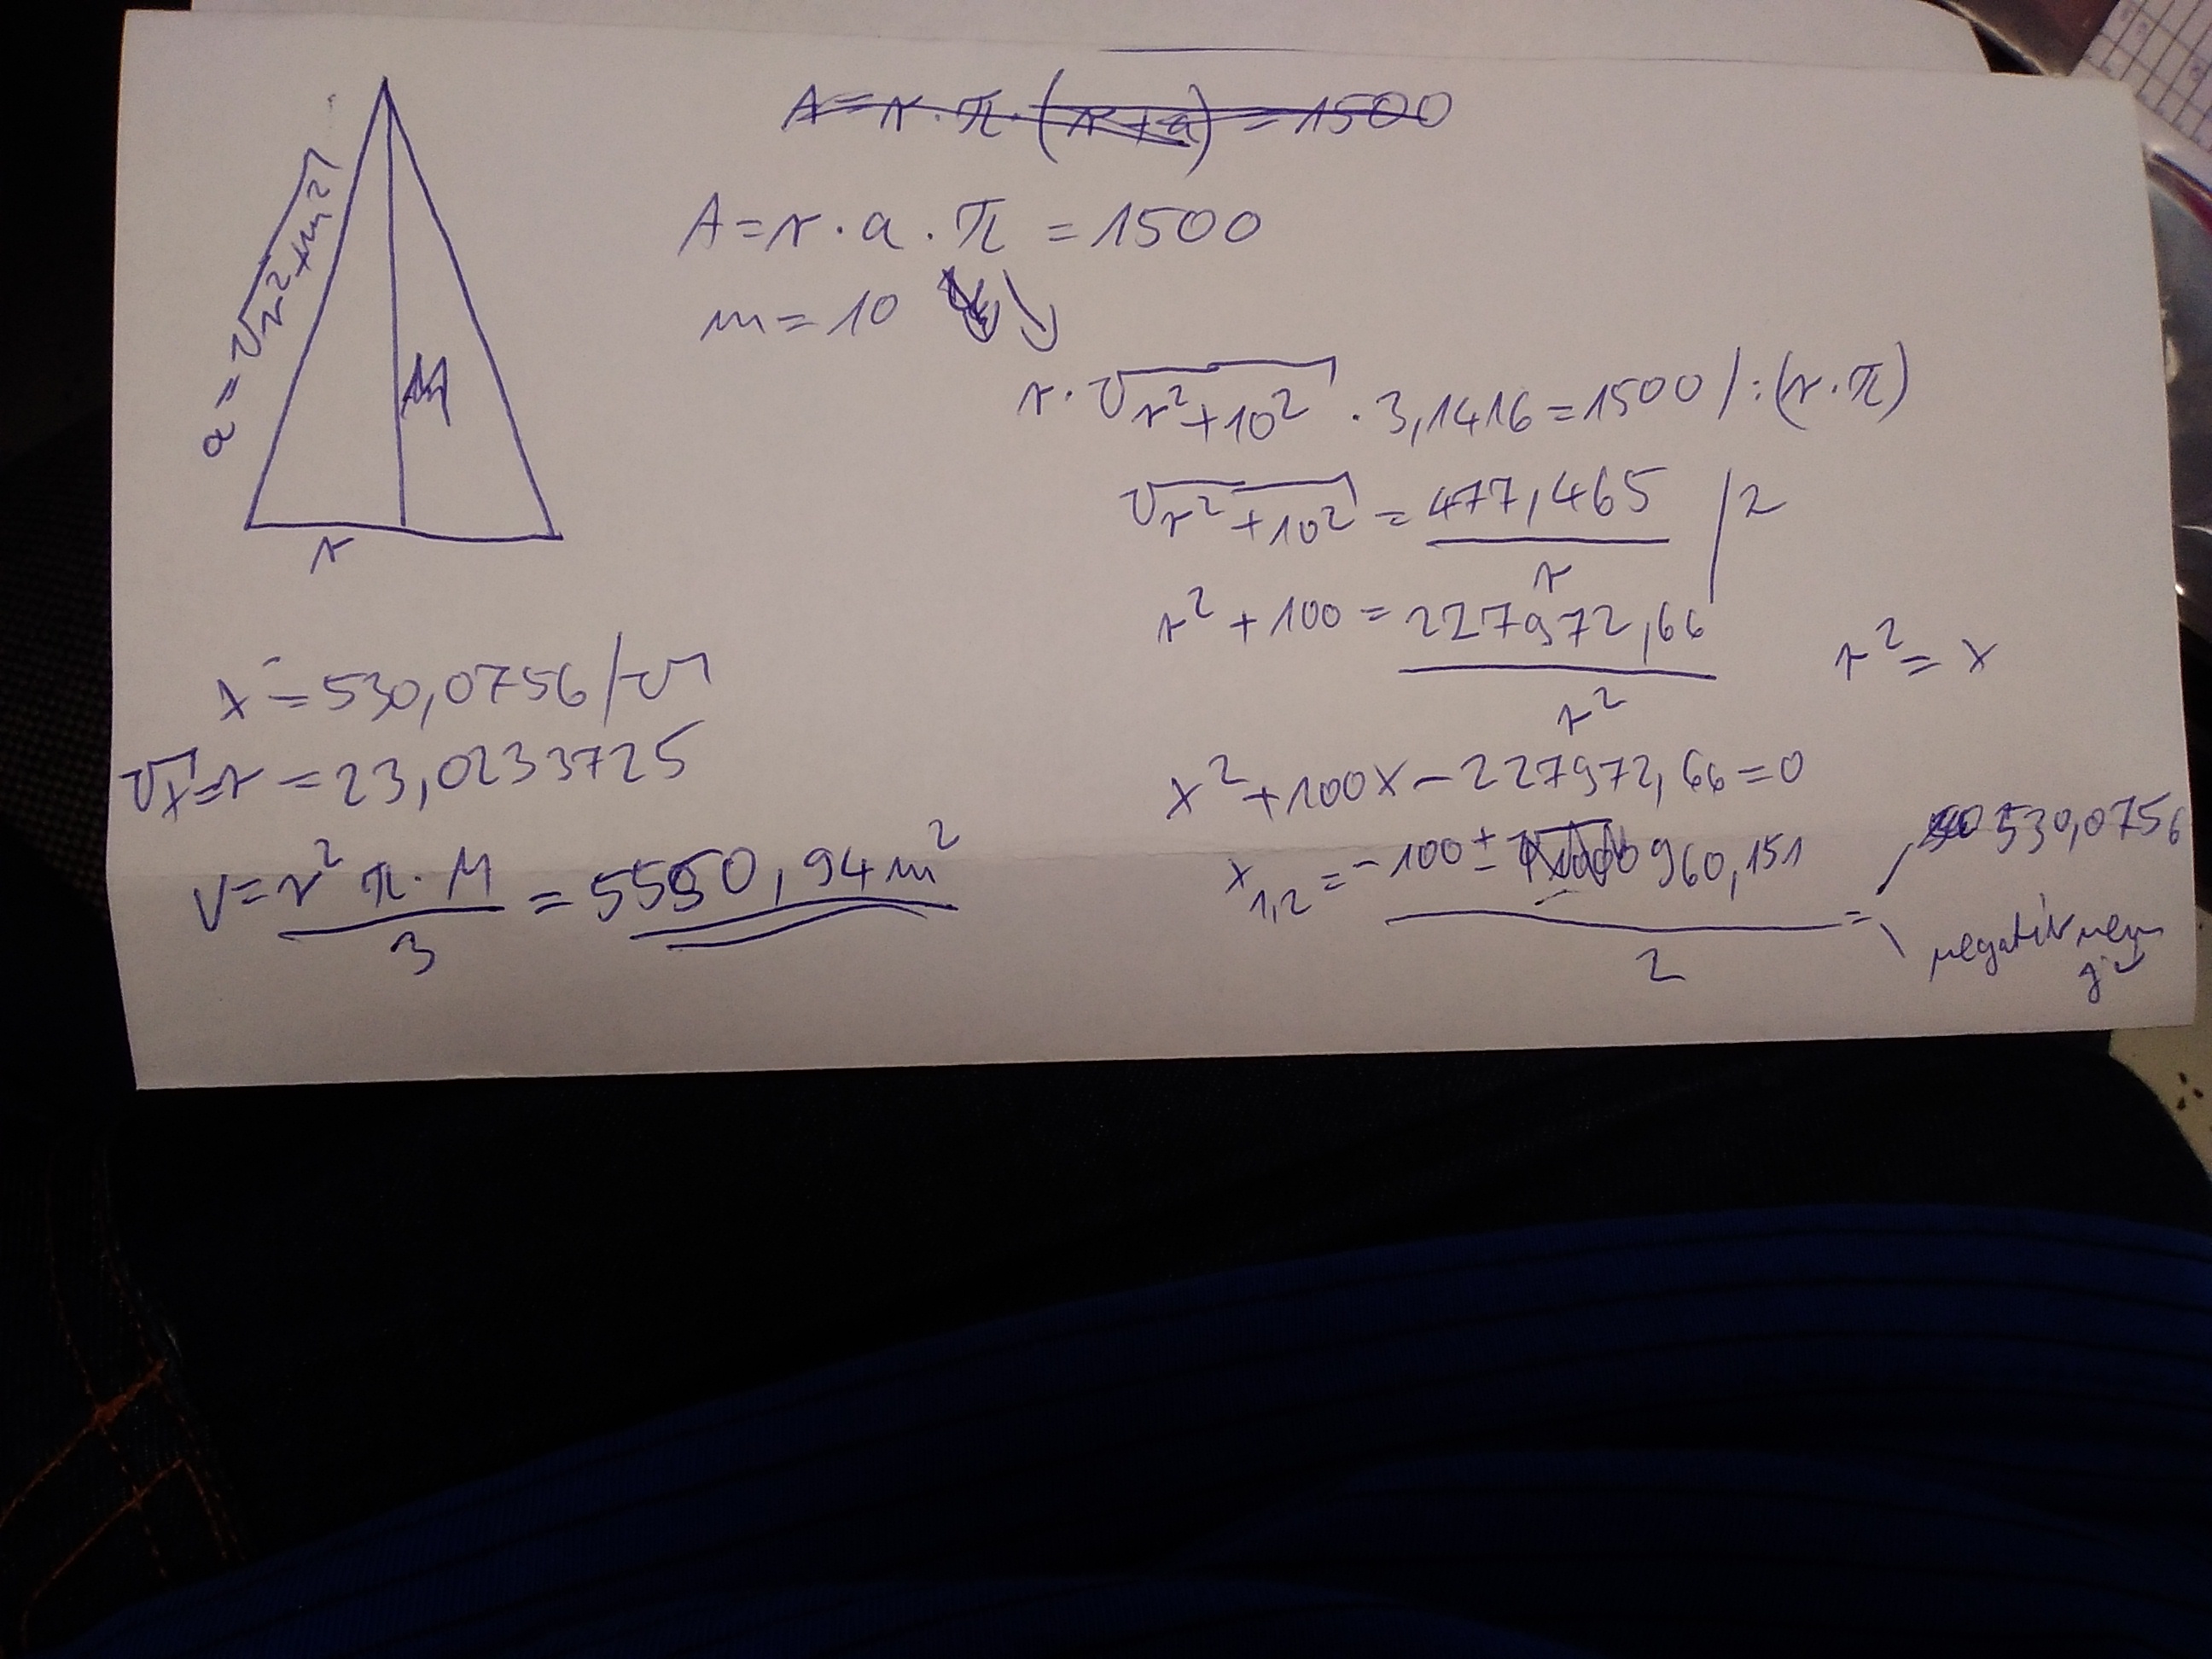 A = r · π · (r + a) = 1500
A = r · a · π = 1500
m = 10
a = √(r² + m²)
M
r
r · √(r² + 10²) · 3,1416 = 1500 / : (r · π)
√(r² + 10²) = 477,465 / r /²
r² + 100 = 227972,66 / r²
r² = x
x² + 100x - 227972,66 = 0
x₁,₂ = (-100 ± 960,151) / 2 = 530,0756
negatív nem jó
x = 530,0756 / √
√x = r = 23,0233725
V = r² π · M / 3 = 5550,94 m²